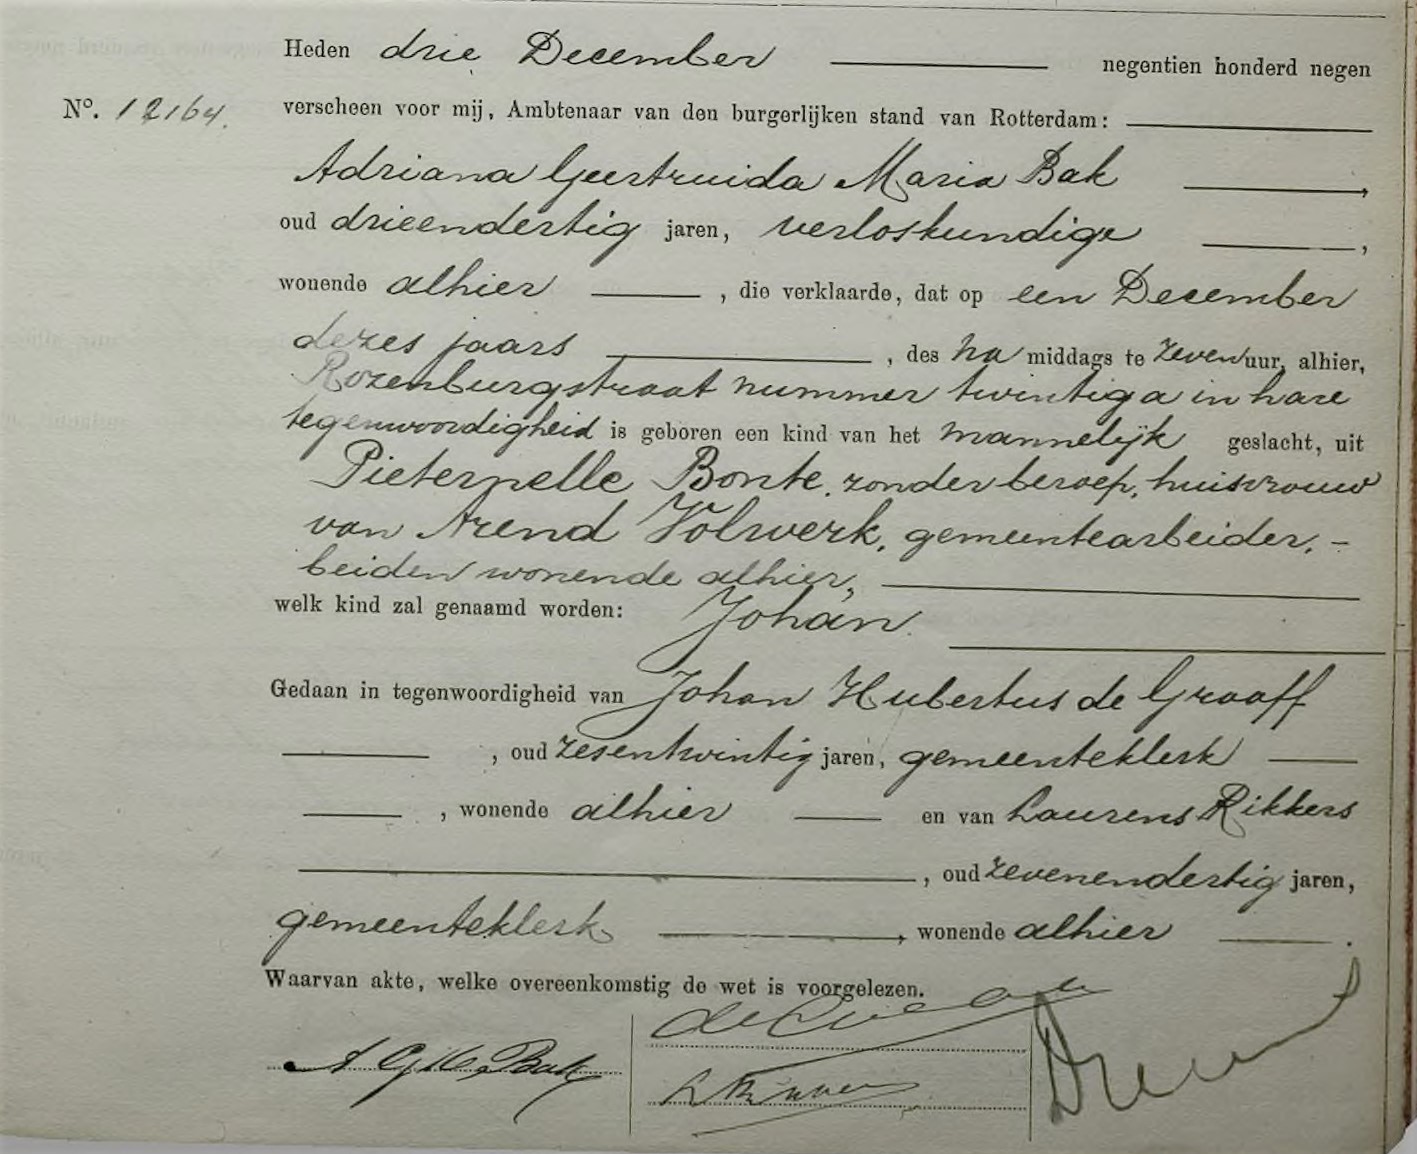 Heden drie December negentien honderd negen
Nº. 12164. verscheen voor mij, Ambtenaar van den burgerlijken stand van Rotterdam:
Adriana Geertruida Maria Bak,
oud drieendertig jaren, verloskundige,
wonende alhier, die verklaarde, dat op een December
dezes jaars, des na middags te zeven uur, alhier,
Rozenburgstraat nummer twintig a in hare
tegenwoordigheid is geboren een kind van het mannelijk geslacht, uit
Pieternelle Bonte, zonder beroep, huisvrouw
van Arend Volwerk, gemeentearbeider, -
beiden wonende alhier,
welk kind zal genaamd worden: Johan
Gedaan in tegenwoordigheid van Johan Hubertus de Graaff
, oud zesentwintig jaren, gemeenteklerk
, wonende alhier en van Laurens Rikkers
, oud zevenendertig jaren,
gemeenteklerk, wonende alhier.
Waarvan akte, welke overeenkomstig de wet is voorgelezen.
A G M Bak